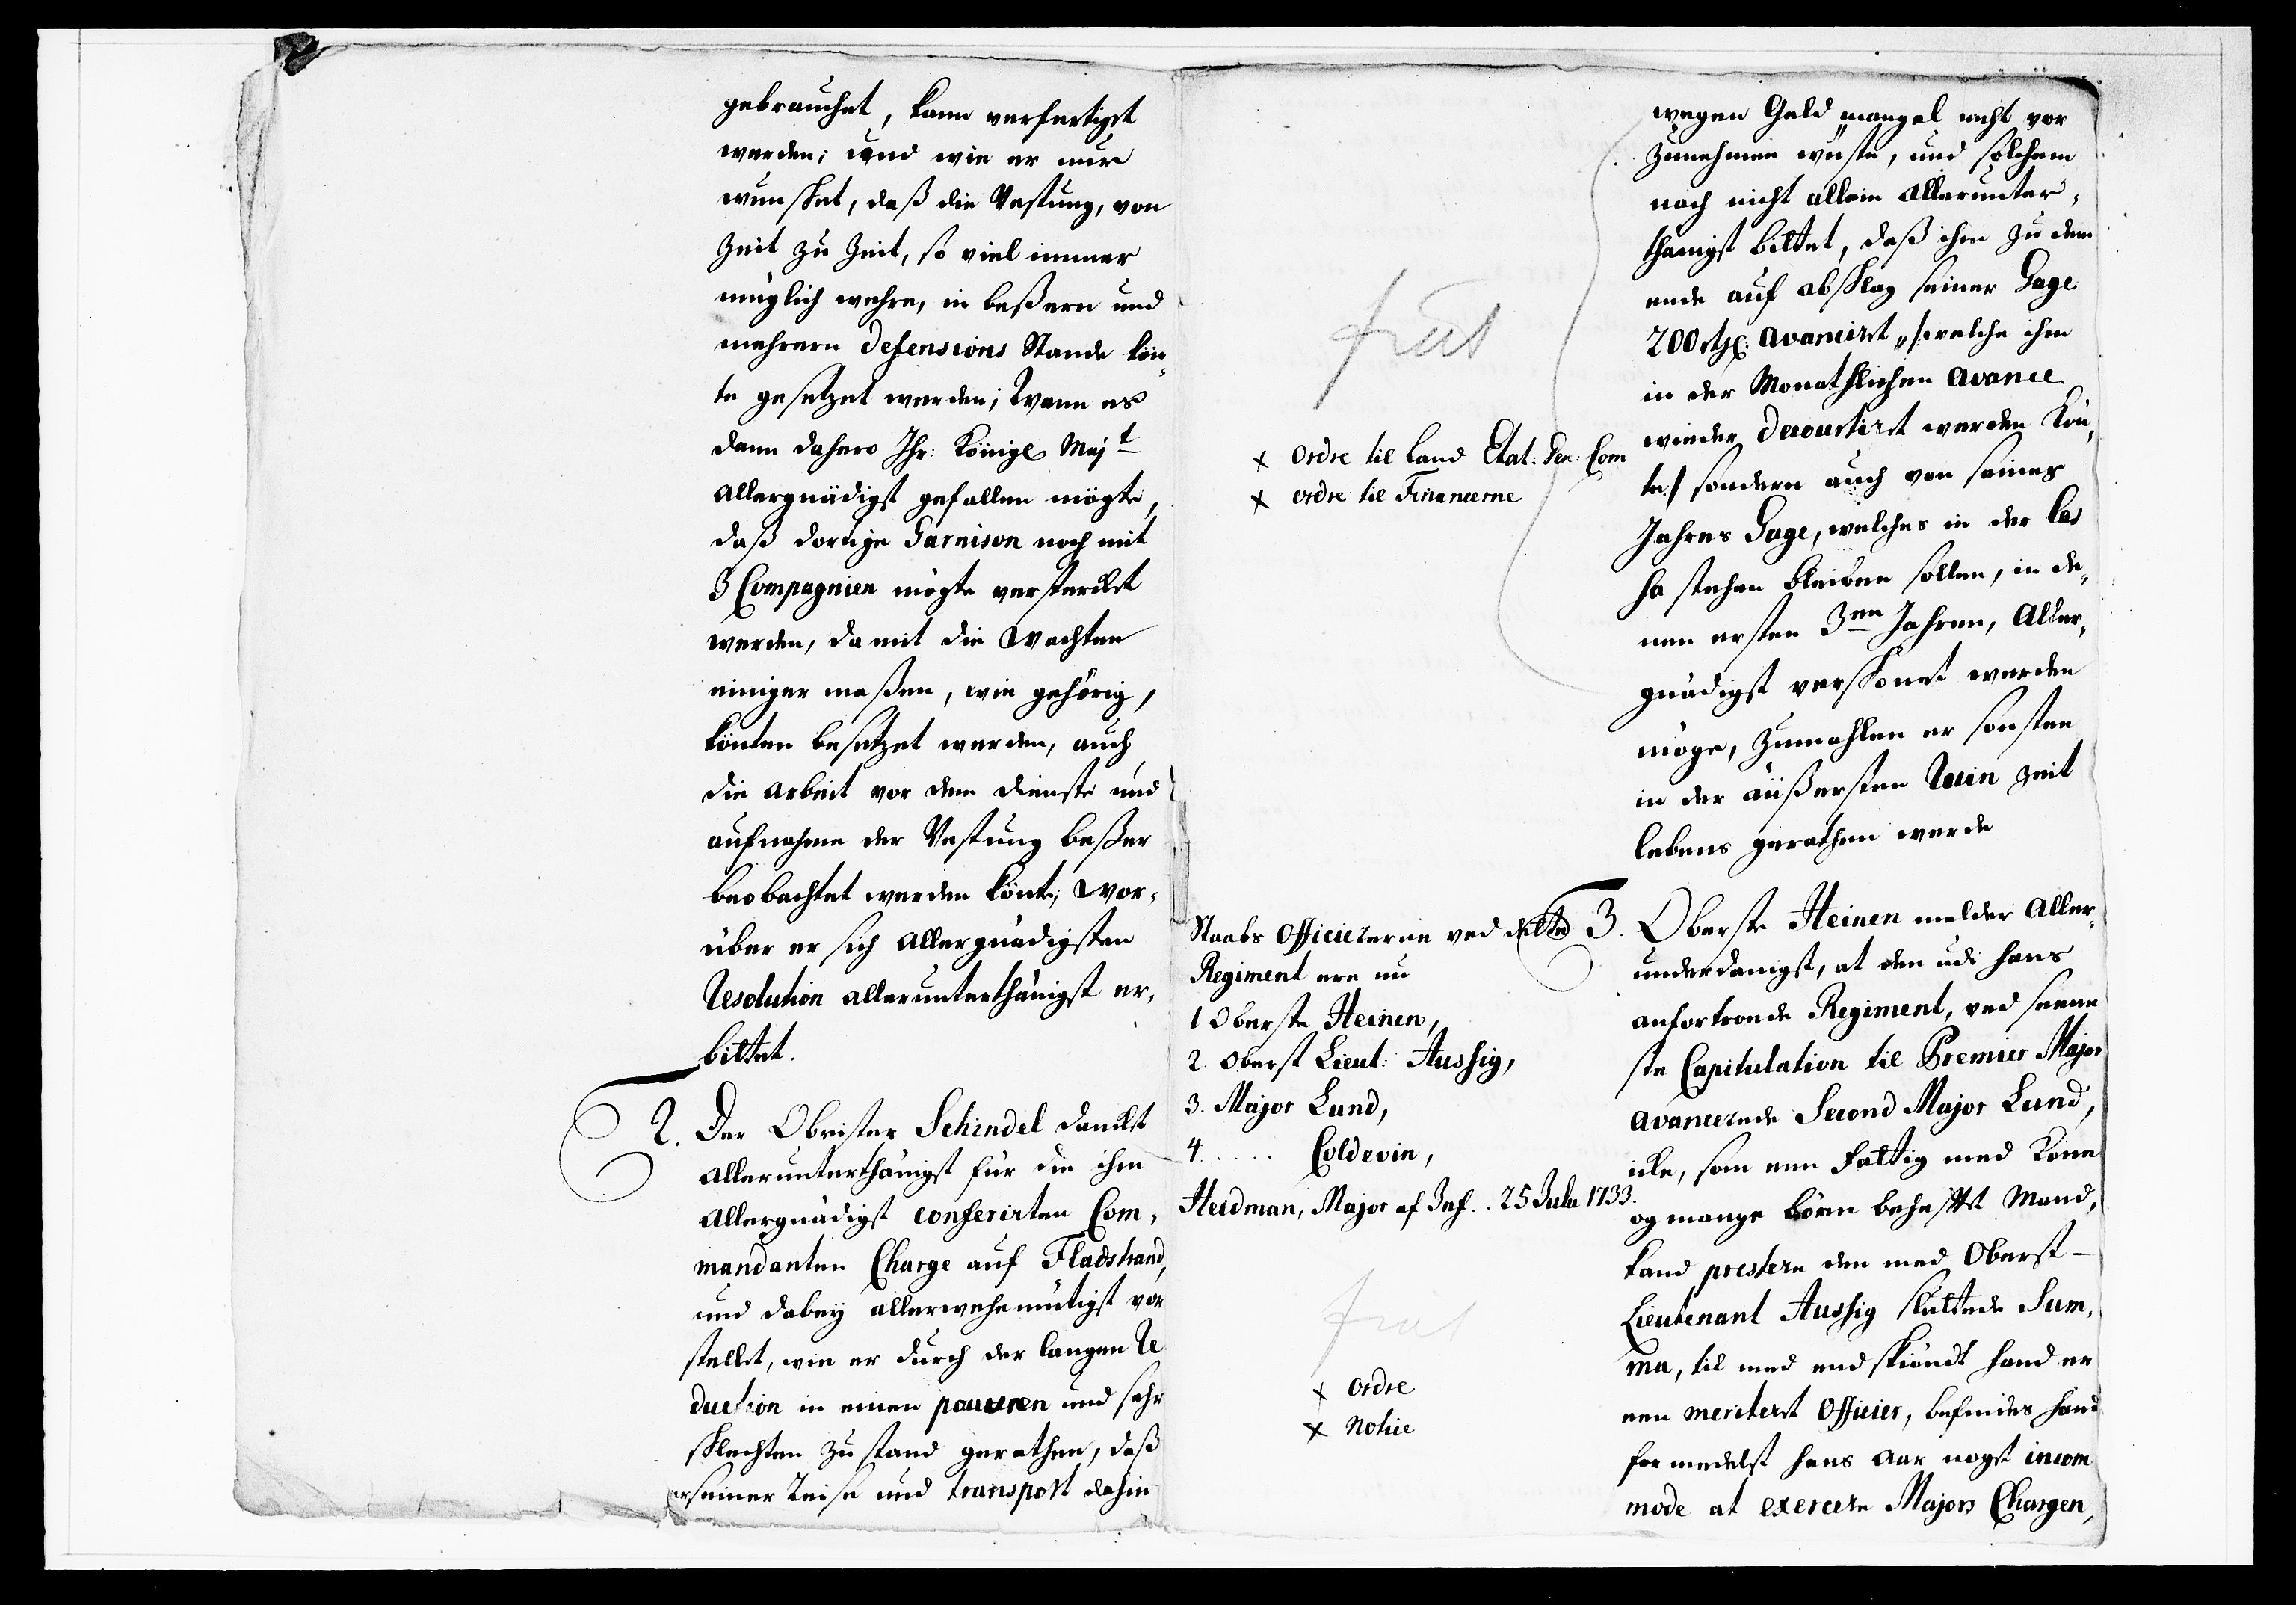 gebrauchet, kann verfertiget
werden; und wie er nur
wunschet, daß die Vestung, von
Zeit zu Zeit, so viel immer
müglich wehre, in beßern und
mehrern Defensions Stande kön-
te gesetzet werden; Wann es
dann dahero Ihr: Königl Majt
allergnädigst gefallen mögte,
daß dortige Garnison noch mit
3 Compagnien mögte verstercket
werden, damit die Wachten
einiger maßen, wie gehörig,
könten besetzet werden, auch
die Arbeit vor dem Dienste und
aufnahme der Vestung beßer
beobachtet werden könte; wor-
über er sich allergnädigsten
Resolution allerunterthänigst er-
bittet.
2. Der Obrister Schindel dancket
allerunterthänigst für die ihm
allergnädigst conferirten Com-
mandanten Charge auf Fladstrand,
und dabey allerwehemütigst vor
stellet, wie er durch der langen Re
duction in einen pauvren und sehr
schlechten Zustand gerathen, daß
er seiner Reise und transport dahin
fiat
x Ordre til Land Etat: Gen: Com
x ordre til Financerne
Staabs Officiererne ved dette
Regiment ere nu
1 Oberste Heinen,
2. Oberst Lieut: Aussig,
3. Major Lund,
4. . . . . Coldevin,
Heidman, Major af Inf. . 25 Julii 1733.
fiat
x Ordre
x Notice
wegen Geld mangel nicht vor
zunehmen wüste, und solchem
nach nicht allein allerunter-
thänigst bittet, daß ihm zu dem
ende auf abschlag seiner Gage
200 rthl: avanciret /: welche ihm
in der Monathlichen avance
wieder decourtiret werden kön-
te :/ sondern auch von seines
Jahres Gage, welches in der Cas
sa stehen bleiben sollen, in de-
nen ersten 3en Jahren, Aller-
gnädigst verschonet werden
möge, Zumahlen er sonsten
in der äüßersten Ruin Zeit
lebens gerathen werde
3. Oberste Heinen melder aller-
underdanigst, at den udi hans
anfortroede Regiment, ved seene
ste Capitulation til Premier Major
avancerede Second Major Lund,
icke, som een fattig med Kone
og mange börn behefftet Mand,
kand prestere den med Oberst-
Lieutenant Aussig sluttede Sum-
ma, til med endskiöndt hand er
een meriteret Officier, befindes hand
formedelst hans aar noget incom
mode at exercere Majors Chargen,